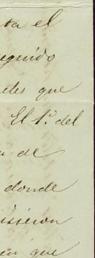 ta el
eguido
des que
El 1º. del
a de
donde
mision
que